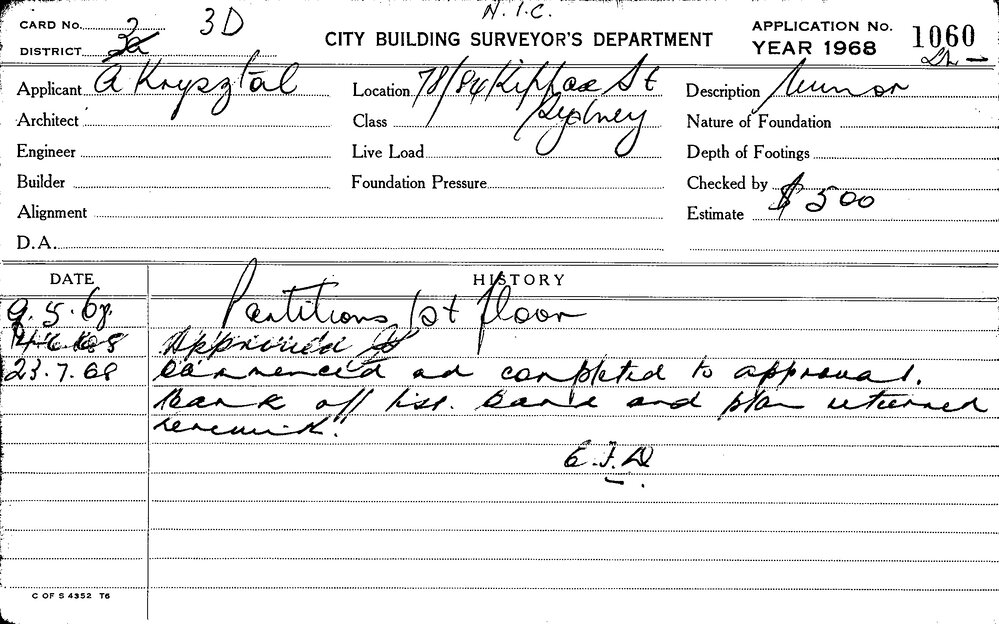 N.I.C.
CARD No. 2 3D
DISTRICT 3a
CITY BUILDING SURVEYOR'S DEPARTMENT
APPLICATION No. 1060
YEAR 1968
Applicant A Krysztal
Location 78/84 Kippax St
Sydney
Description Minor
Architect
Class
Nature of Foundation
Engineer
Live Load
Depth of Footings
Builder
Foundation Pressure
Checked by
Alignment
Estimate $500
D.A.
DATE HISTORY
9.5.68 Partitions 1st floor
Approved
23.7.68 Commenced and completed to approval.
Mark off list. Card and plan returned
herewith.
E.F.D.
C OF S 4352 T6